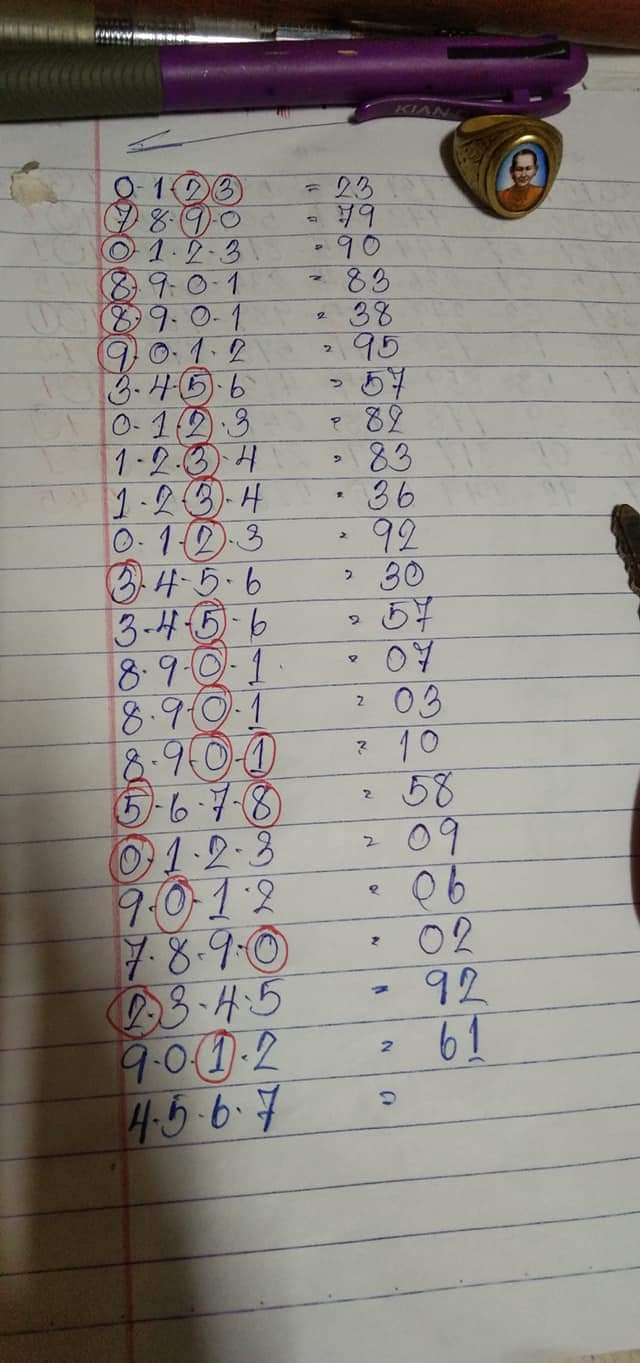 KIAN
0-1-2 3 = 23
7 8-9-0 = 79
0-1-2-3 = 90
8-9-0-1 = 83
8-9-0-1 = 38
9-0-1-2 = 95
3-4-5-6 = 57
0-1-2-3 = 82
1-2-3-4 = 83
1-2-3-4 = 36
0-1-2-3 = 92
3-4-5-6 = 30
3-4-5-6 = 57
8-9-0-1 = 07
8-9-0-1 = 03
8-9-0-1 = 10
5-6-7-8 = 58
0-1-2-3 = 09
9-0-1-2 = 06
7-8-9-0 = 02
2-3-4-5 = 92
9-0-1-2 = 61
4-5-6-7 =